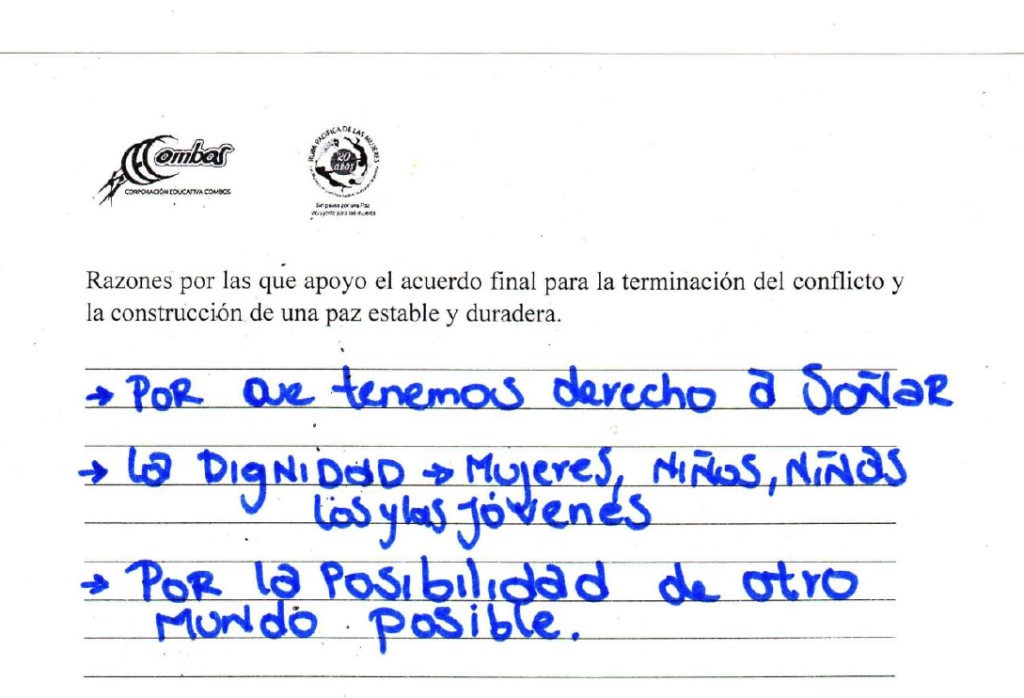 Combos
CORPORACIÓN EDUCATIVA COMBOS
RUTA PACIFICA DE LAS MUJERES
20
años
Razones por las que apoyo el acuerdo final para la terminación del conflicto y
la construcción de una paz estable y duradera.
→ POR QUE tenemos derecho a SOÑAR
→ La DIGNIDAD → Mujeres, NIÑOS, NIÑAS
los y las jóvenes
→ POR la POSIbilidad de otro
MUNDO posible.